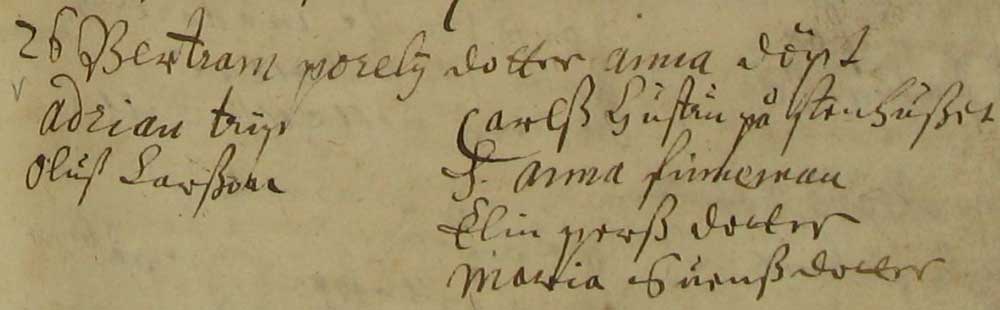 26 Bertram porelÿ dotter anna döpt
Adrian trip
Oluf Larßon
Carlß Hustru på stenhußet
H. anna finneman
Elin perß dotter
Maria Suenßdotter